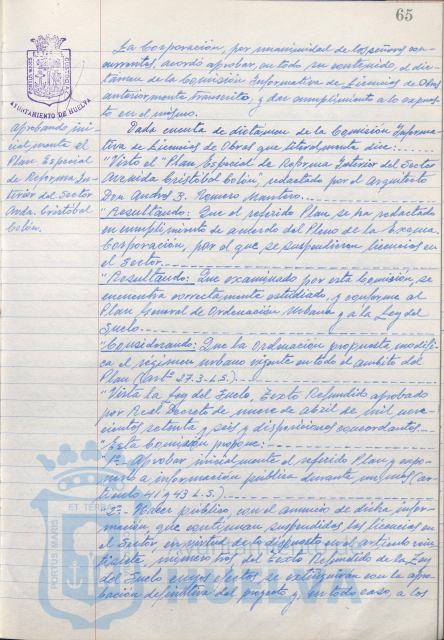 65
La Corporación, por unanimidad de los señores con-
currentes, acordó aprobar, en todo su contenido, el dic-
támen de la Comisión Informativa de Licencias de Obras
anteriormente transcrito, y dar cumplimiento a lo expues-
to en el mismo.
AYUNTAMIENTO DE HUELVA
Aprobando ini-
cialmente el
Plan Especial
de Reforma In-
terior del Sector
Avda. Cristóbal
Colón.
Dada cuenta de dictámen de la Comisión Informa-
tiva de Licencias de Obras que literalmente dice:
"Visto el "Plan Especial de Reforma Interior del Sector
Avenida Cristóbal Colón", redactado por el Arquitecto
Don Andrés J. Romero Mantero.
"Resultando: Que el referido Plan, se ha redactado
en cumplimiento de acuerdo del Pleno de la Excma.
Corporación, por el que se suspendieron licencias en
el Sector.
"Resultando: Que examinado por esta Comisión, se
encuentra correctamente estudiado, y conforme al
Plan General de Ordenación Urbana y a la Ley del
Suelo.
"Considerando: Que la ordenación propuesta modifi-
ca el régimen urbano vigente en todo el ámbito del
Plan (artº 27.3-L.S.).
"Vista la Ley del Suelo, Texto Refundido aprobado
por Real Decreto de nueve de abril de mil nove-
cientos setenta y seis y disposiciones concordantes.
"Esta Comisión propone:
"1º- Aprobar inicialmente el referido Plan y expo-
nerlo a información pública durante un mes (ar-
tículo 41 y 43 L.S.).
"2º- Hacer público, con el anuncio de dicha infor-
mación, que continuan suspendidas las licencias en
el Sector, en virtud de lo dispuesto en el artículo vein-
tisiete, número tres del Texto Refundido de la Ley
del Suelo cuyos efectos, se extinguiran con la apro-
bación definitiva del proyecto y, en todo caso, a los
PORTUS MARIS
ET TERRAE
HUELVA